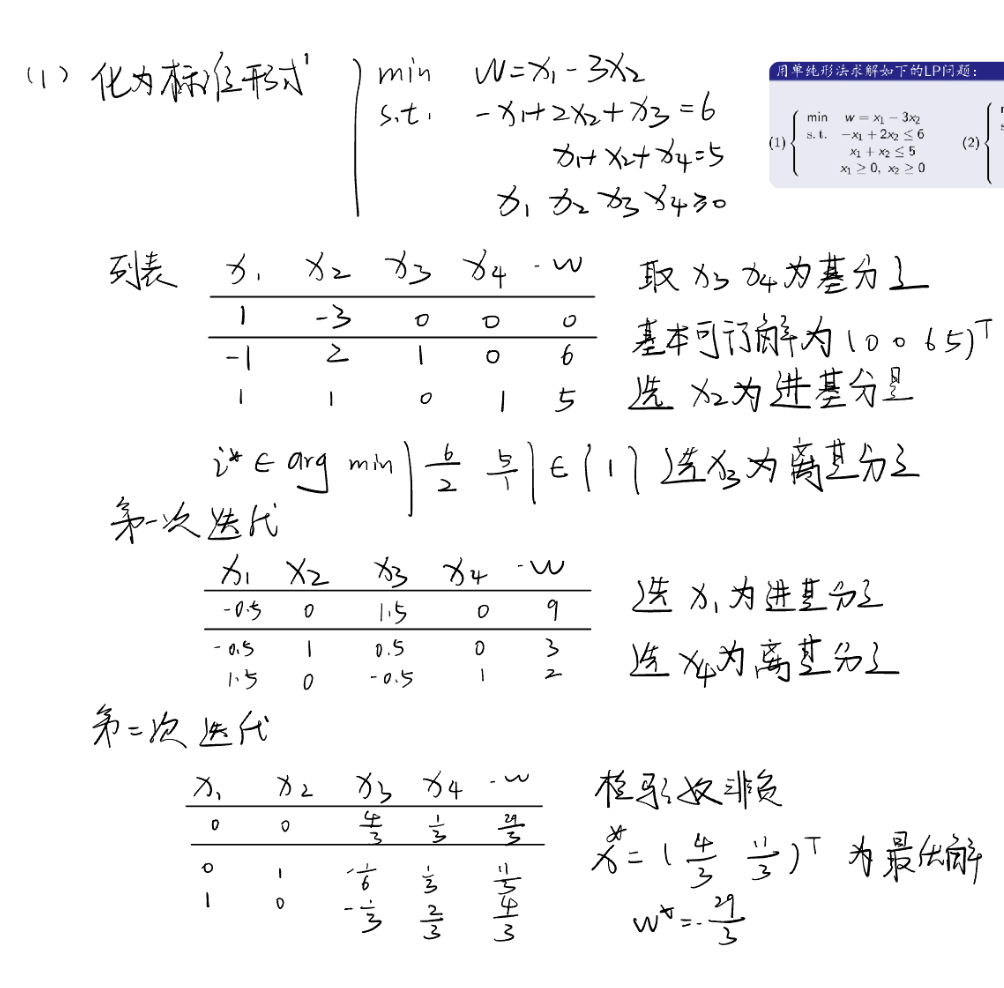 (1) 化为标准形式
min W=x₁-3x₂
s.t. -x₁+2x₂+x₃=6
x₁+x₂+x₄=5
x₁ x₂ x₃ x₄≥0
用单纯形法求解如下的LP问题：
(1) min w = x₁ − 3x₂ (2)
s.t. −x₁ + 2x₂ ≤ 6
x₁ + x₂ ≤ 5
x₁ ≥ 0, x₂ ≥ 0
列表 x₁ x₂ x₃ x₄ -w
1 -3 0 0 0
-1 2 1 0 6
1 1 0 1 5
取 x₃ x₄为基分量
基本可行解为(0 0 6 5)ᵀ
选 x₂为进基分量
i*∈ arg min{6/2 5/1}∈{1} 选x₃为离基分量
第一次迭代
x₁ x₂ x₃ x₄ -w
-0.5 0 1.5 0 9
-0.5 1 0.5 0 3
1.5 0 -0.5 1 2
选 x₁为进基分量
选 x₄为离基分量
第二次迭代
x₁ x₂ x₃ x₄ -w
0 0 4/3 1/3 29/3
0 1 -1/6 1/3 11/3
1 0 -1/3 2/3 4/3
检验数非负
x*=(4/3 11/3)ᵀ 为最优解
w*=-29/3